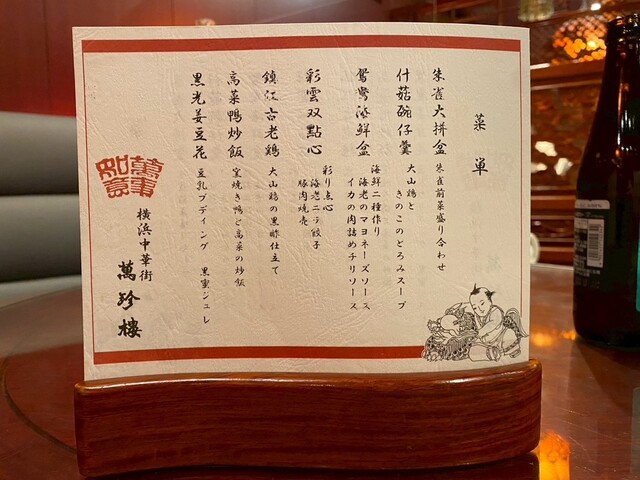 菜単
朱雀大拼盆 朱雀前菜盛り合わせ
什菇碗仔羹 大山鶏と
きのこのとろみスープ
鴛鴦海鮮盒 海鮮二種作り
海老のマヨネーズソース
イカの肉詰めチリソース
彩雲双點心 彩り点心
海老ニラ餃子
豚肉焼売
鎮江古老鶏 大山鶏の黒酢仕立て
高菜鴨炒飯 窯焼き鴨と高菜の炒飯
黒光姜豆花 豆乳プディング 黒蜜ジュレ
萬事如意
横浜中華街
萬珍樓